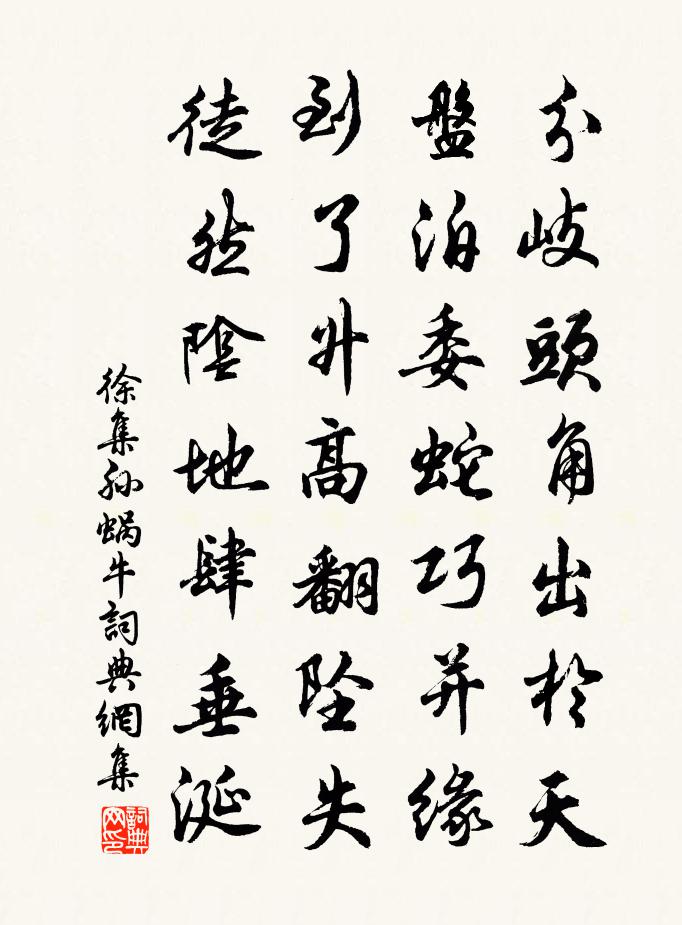 分歧頭角出於天
盤泊委蛇巧并緣
到了升高翻坠失
徒然陰地肆垂涎
徐集孙蝸牛詞典網集
詞典网印